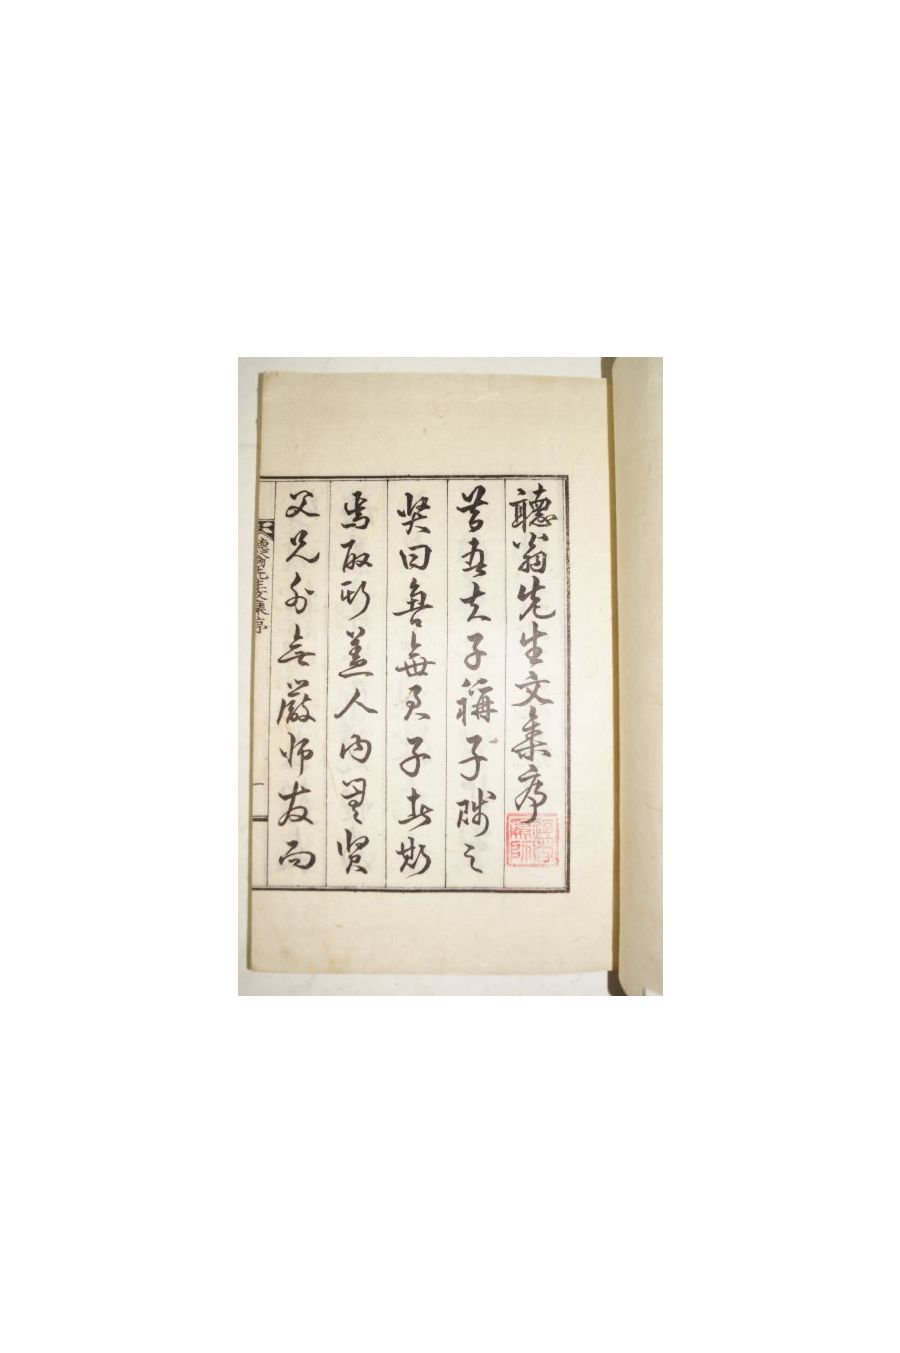 聽翁先生文集序
昔吾夫子稱子賤之
賢曰魯無君子者斯
焉取斯蓋人內無賢
父兄外無嚴師友而
聽翁先生文集序
一